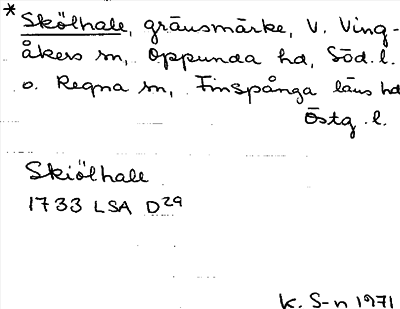 * Skölhale, gränsmärke, V. Ving-
åkers sn, Oppunda hd, Söd. l.
o. Regna sn, Finspånga läns hd
Östg. l.
Skiölhale
1733 LSA D29
K. S-n 1971